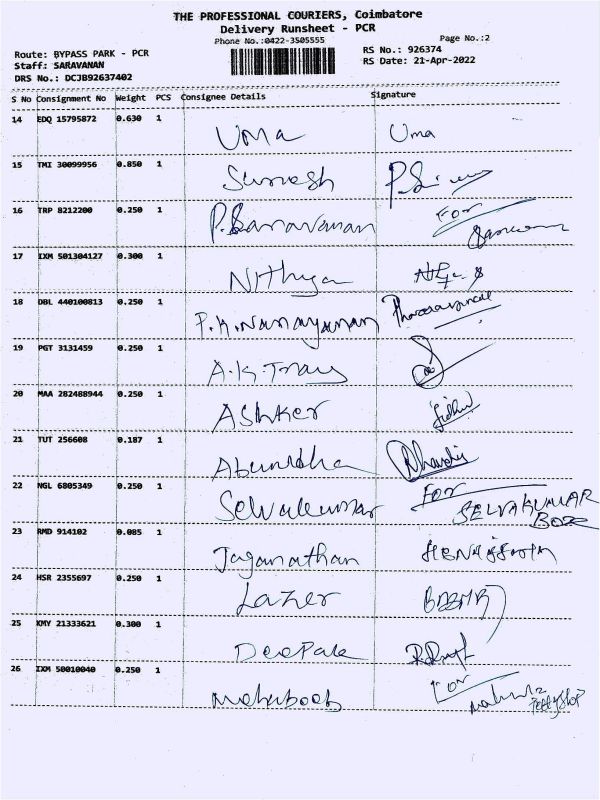 THE PROFESSIONAL COURIERS, Coimbatore
Delivery Runsheet - PCR
Phone No.:0422-3505555
Page No.:2
Route: BYPASS PARK - PCR
RS No.: 926374
Staff: SARAVANAN
RS Date: 21-Apr-2022
DRS No.: DCJB92637402
S No Consignment No Weight PCS Consignee Details Signature
14 EDQ 15795872 0.630 1 Uma Uma
15 TMI 30099956 0.850 1 Suresh
16 TRP 8212200 0.250 1 P.Saravanan For
17 IXM 501304127 0.300 1 Nithya
18 DBL 440100813 0.250 1 P.K.Narayanan
19 PGT 3131459 0.250 1
20 MAA 282488944 0.250 1 Ashker
21 TUT 256608 0.187 1
22 NGL 6805349 0.250 1 Selvakumar For SELVAKUMAR
23 RMD 914102 0.085 1 Jaganathan
24 HSR 2355697 0.250 1 Lazer
25 KMY 21333621 0.300 1 Deepak
26 IXM 50010040 0.250 1 Mehuboob For